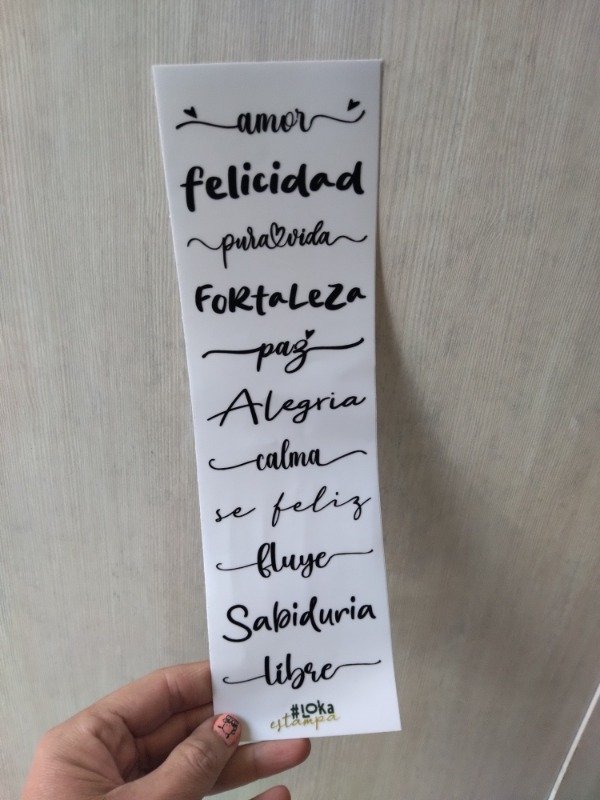 amor
felicidad
pura vida
FoRtaLeZa
paz
Alegria
calma
se feliz
fluye
Sabiduria
libre
#LOKa
estampa